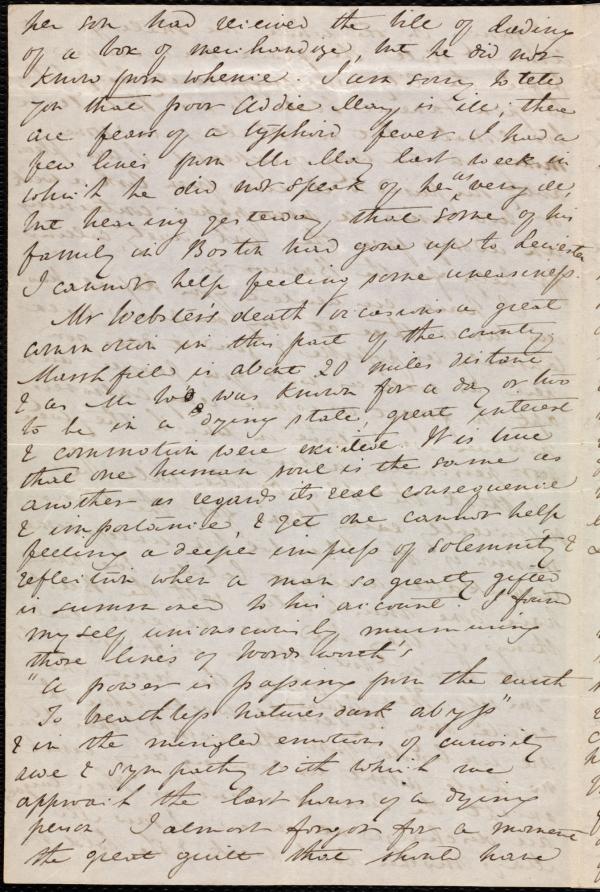 her son had received the bill of lading
of a box of merchandize, but he did not
know from whence. I am sorry to tell
you that poor Addie May is ill; there
are fears of a typhoid fever. I had a
few lines from Mr May last week in
which he did not speak of her as very ill,
but hearing yesterday, that some of his
family in Boston had gone up to Leicester
I cannot help feeling some uneasiness.
Mr Webster's death occasions a great
commotion in this part of the country,
Marshfield is about 20 miles distant
& as Mr W. was known for a day or two
to be in a dying state, great interest
& commotion were excited. It is true
that one human soul is the same as
another as regards its real consequence
& importance, & yet one cannot help
feeling a deeper impress of solemnity &
reflection when a man so greatly gifted
is summoned to his account. I found
myself unconsciously murmuring
those lines of Wordsworth's
"A power is passing from the earth
To breathless nature's dark abyss"
& in the mingled emotions of curiosity
awe & sympathy with which we
approach the last hours of a dying
person, I almost forgot for a moment
the great guilt that should have